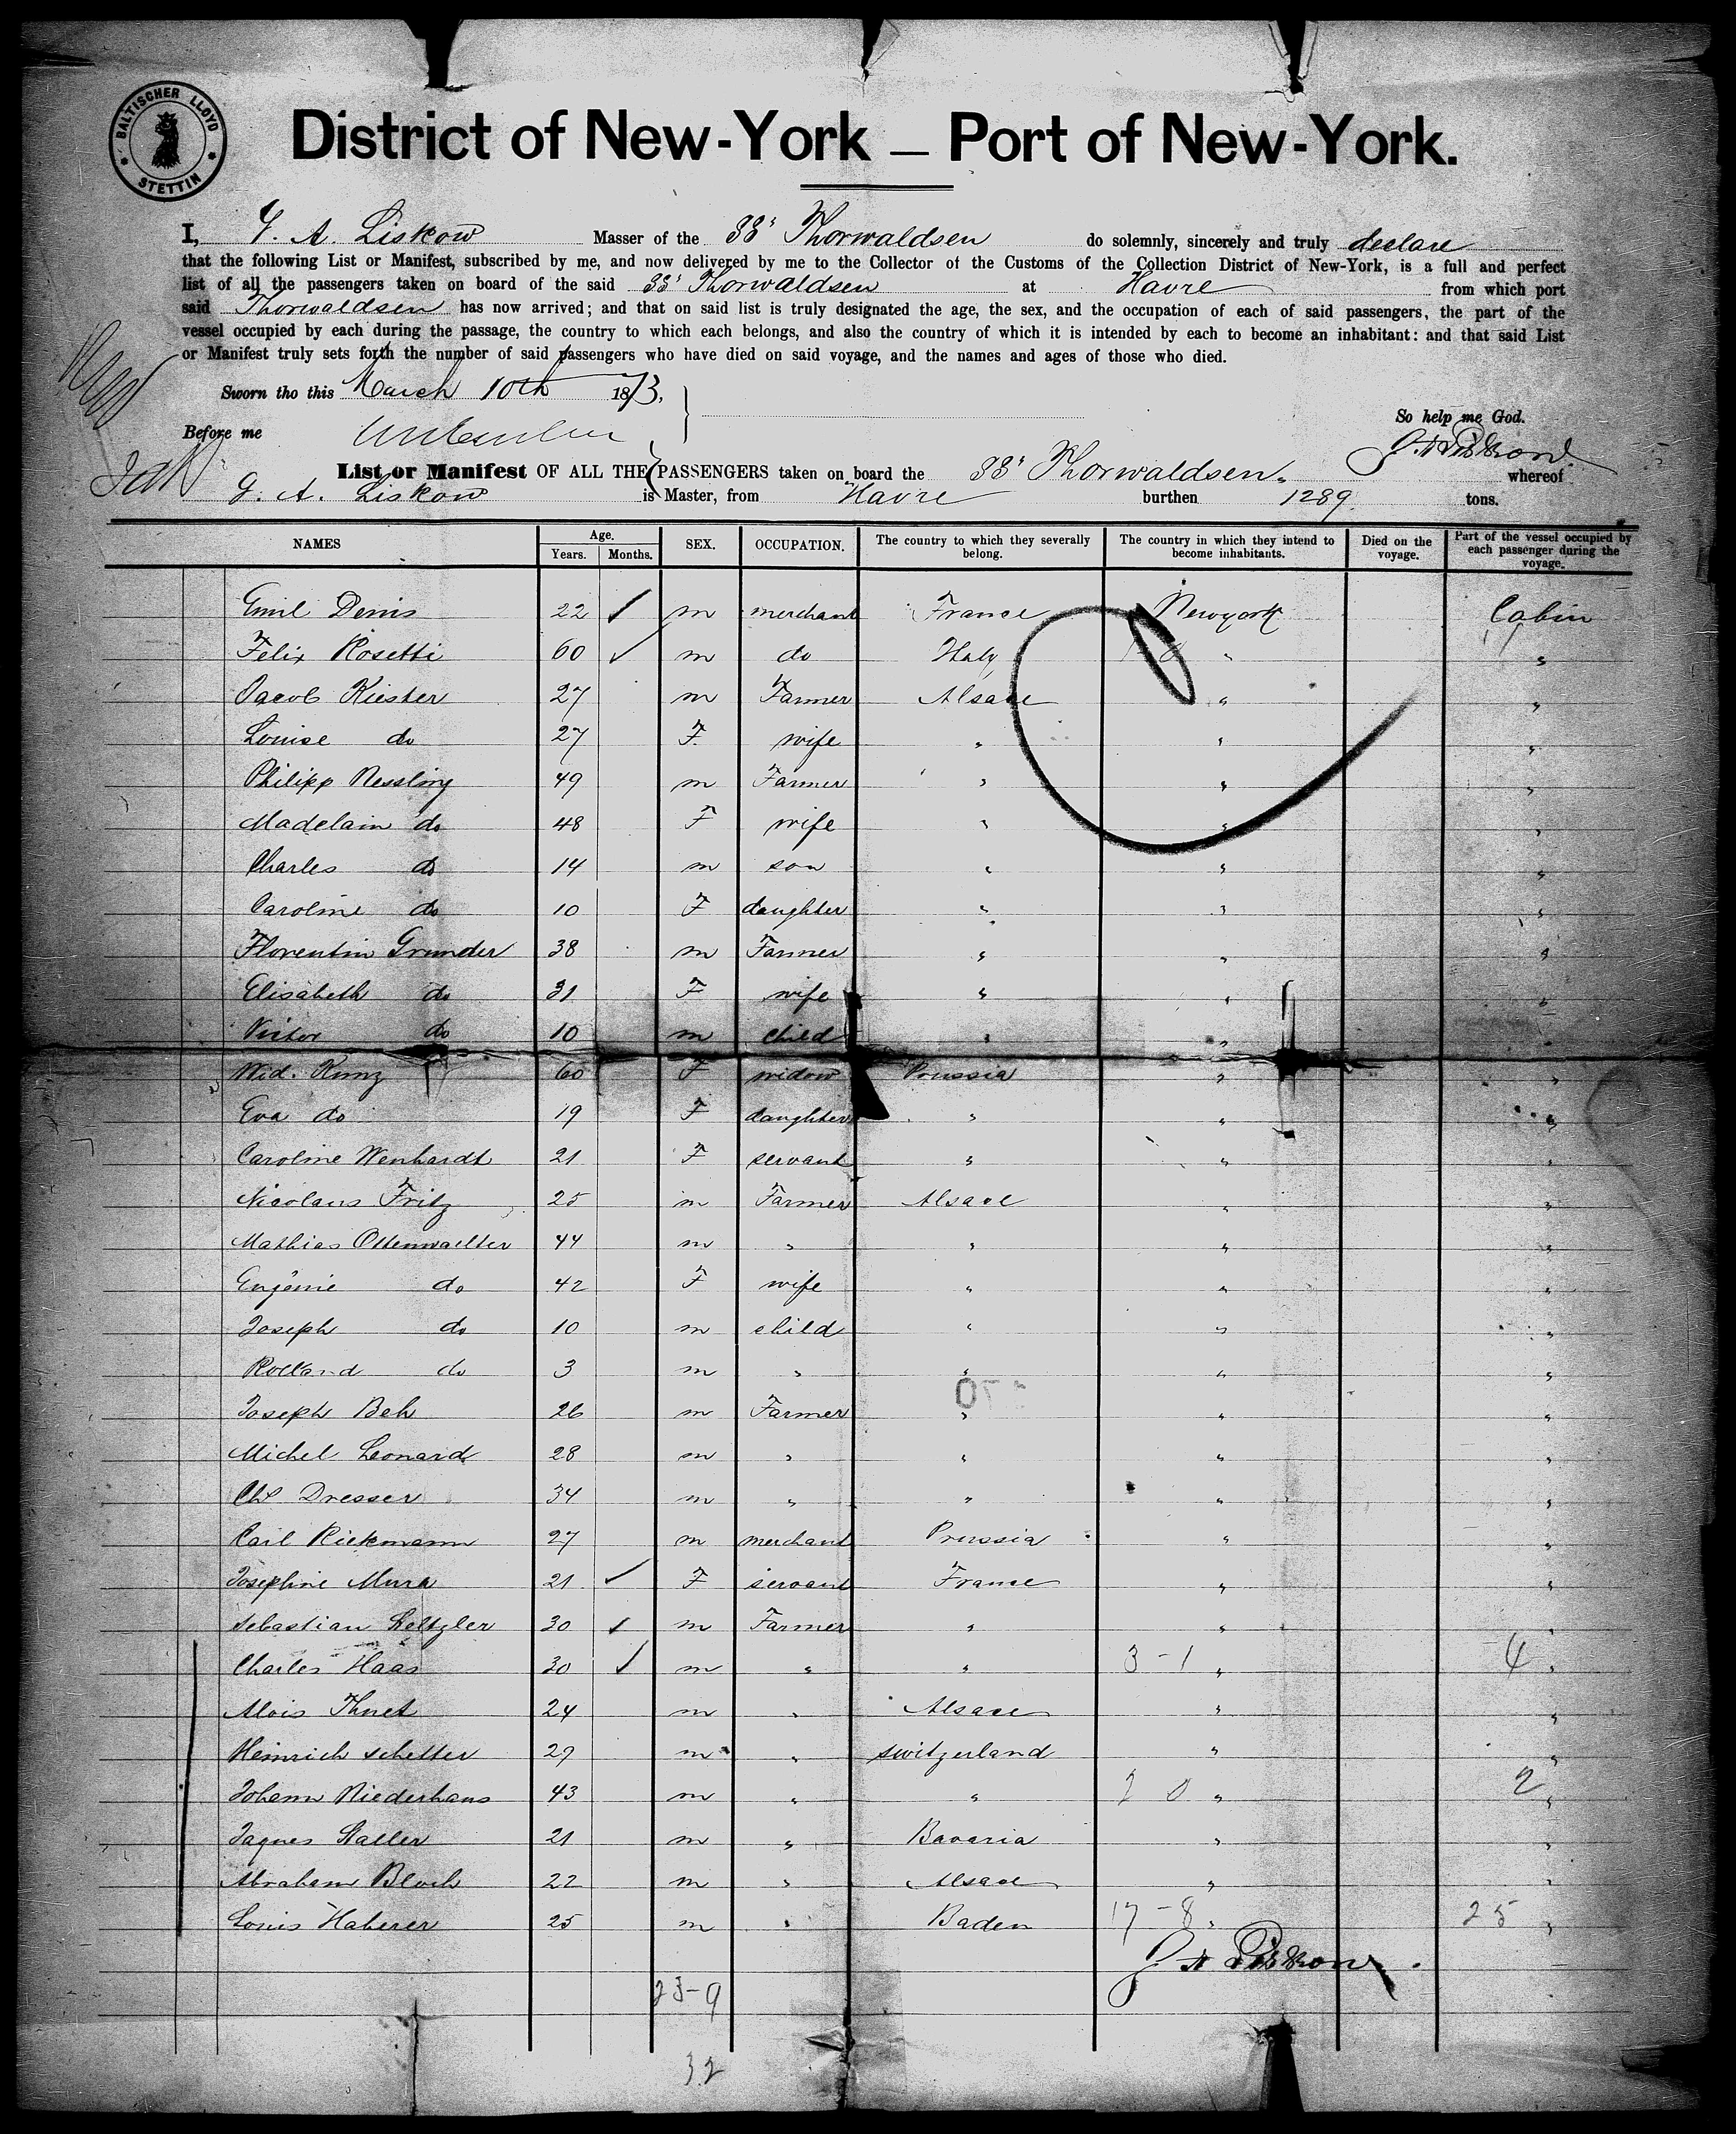 BALTISCHER LLOYD STETTIN
District of New-York — Port of New-York.
I, G. A. Liskow Masser of the SS' Thorwaldsen do solemnly, sincerely and truly declare
that the following List or Manifest, subscribed by me, and now delivered by me to the Collector of the Customs of the Collection District of New-York, is a full and perfect
list of all the passengers taken on board of the said SS' Thorwaldsen at Havre from which port
said Thorwaldsen has now arrived; and that on said list is truly designated the age, the sex, and the occupation of each of said passengers, the part of the
vessel occupied by each during the passage, the country to which each belongs, and also the country of which it is intended by each to become an inhabitant: and that said List
or Manifest truly sets forth the number of said passengers who have died on said voyage, and the names and ages of those who died.
Sworn tho this March 10th 1873,
So help me God.
Before me
G. A. Liskow
List or Manifest OF ALL THE PASSENGERS taken on board the SS' Thorwaldsen. whereof
G. A. Liskow is Master, from Havre burthen 1289. tons.
NAMES Age. Years. Months. SEX. OCCUPATION. The country to which they severally belong. The country in which they intend to become inhabitants. Died on the voyage. Part of the vessel occupied by each passenger during the voyage.
Emil Denis 22 m merchant France Newyork Cabin
Felix Rosetti 60 m do Italy " "
Jacob Kiester 27 m Farmer Alsace " "
Louise do 27 F. wife " " "
Philipp Nessling 49 m Farmer " " "
Madelain do 48 F wife " " "
Charles do 14 m son " " "
Caroline do 10 F daughter " " "
Florentin Grunder 38 m Farmer " " "
Elisabeth do 31 F wife " " "
Victor do 10 m child " " "
Wid. Kunz 60 F widow Prussia " "
Eva do 19 F daughter " " "
Caroline Wenhardt 21 F servant " " "
Nicolaus Fritz 25 m Farmer Alsace " "
Mathias Ottenwaelter 44 m " " " "
Eugenie do 42 F wife " " "
Joseph do 10 m child " " "
Rolland do 3 m " " " "
Joseph Beh 26 m Farmer " " "
Michel Leonard 28 m " " " "
Chs Dresser 34 m " " " "
Carl Rickmann 27 m merchant Prussia " "
Josephine Mura 21 F servant France " "
Sebastian Seltzler 30 m Farmer " " "
Charles Haas 30 m " " 3-1 " 4 "
Alois Thuet 24 m " Alsace " "
Heinrich Schetter 29 m " switzerland " "
Johann Niederhaus 43 m " " 2 0 " 2 "
Jaques Staller 21 m " Bavaria " "
Abraham Bloch 22 m " Alsace " "
Louis Haberer 25 m " Baden 17-8 " 25 "
G A Liskow
23-9
32